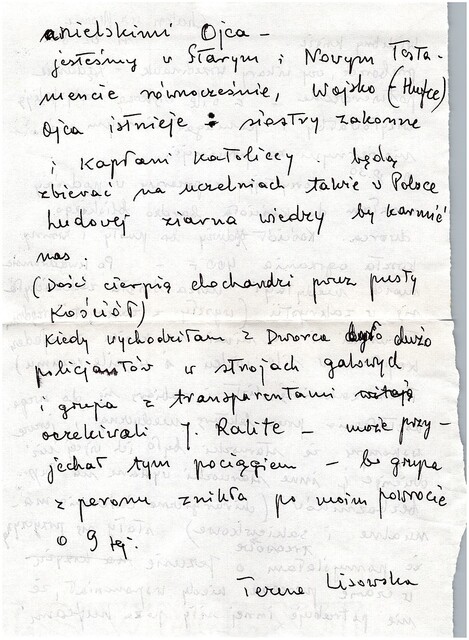 anielskimi Ojca –
jesteśmy w Starym i Nowym Testa-
mencie równocześnie, Wojsko (Hufce)
Ojca istnieje : siostry zakonne
i Kapłani Katoliccy . będą
zbierać na uczelniach także w Polsce
Ludowej ziarna wiedzy by karmić
nas .
(Dość cierpią clochardzi poza pusty
Kościół)
Kiedy wychodziłam z Dworca było dużo
policjantów w strojach galowych
i grupa z transparentami
oczekiwali J. Ralite – może przy-
jechał tym pociągiem – bo grupa
z peronu znikła po moim powrocie
o 9 tej.
Terena Lisowska